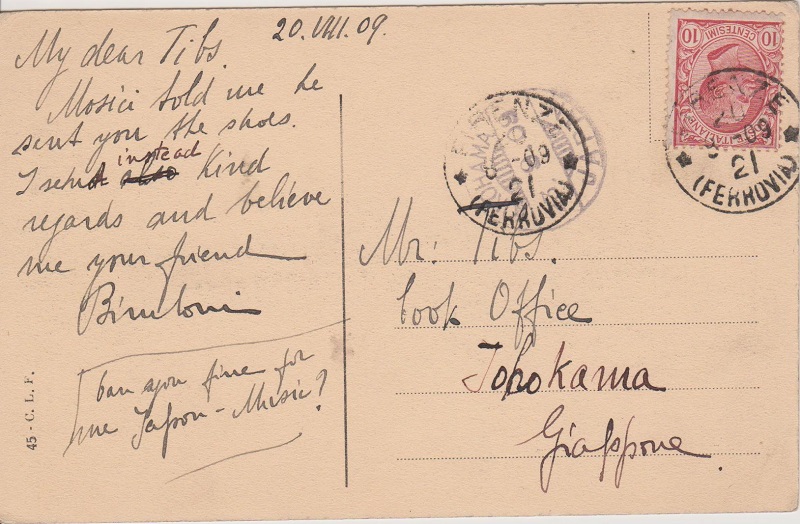 20.VIII.09.
My dear Tibs.
Mosici told me he
sent you the shoes.
instead
I send also Kind
regards and believe
me your friend
can you fine for
me Japon-Music?
45 - C. L. F.
10
CENTESIMI
10
FIRENZE
8 -09
21
(FERROVIA)
FIRENZE
20
8 -09
21
(FERROVIA)
Mr. Tibs.
Cook Office
Yokokama
Giappone